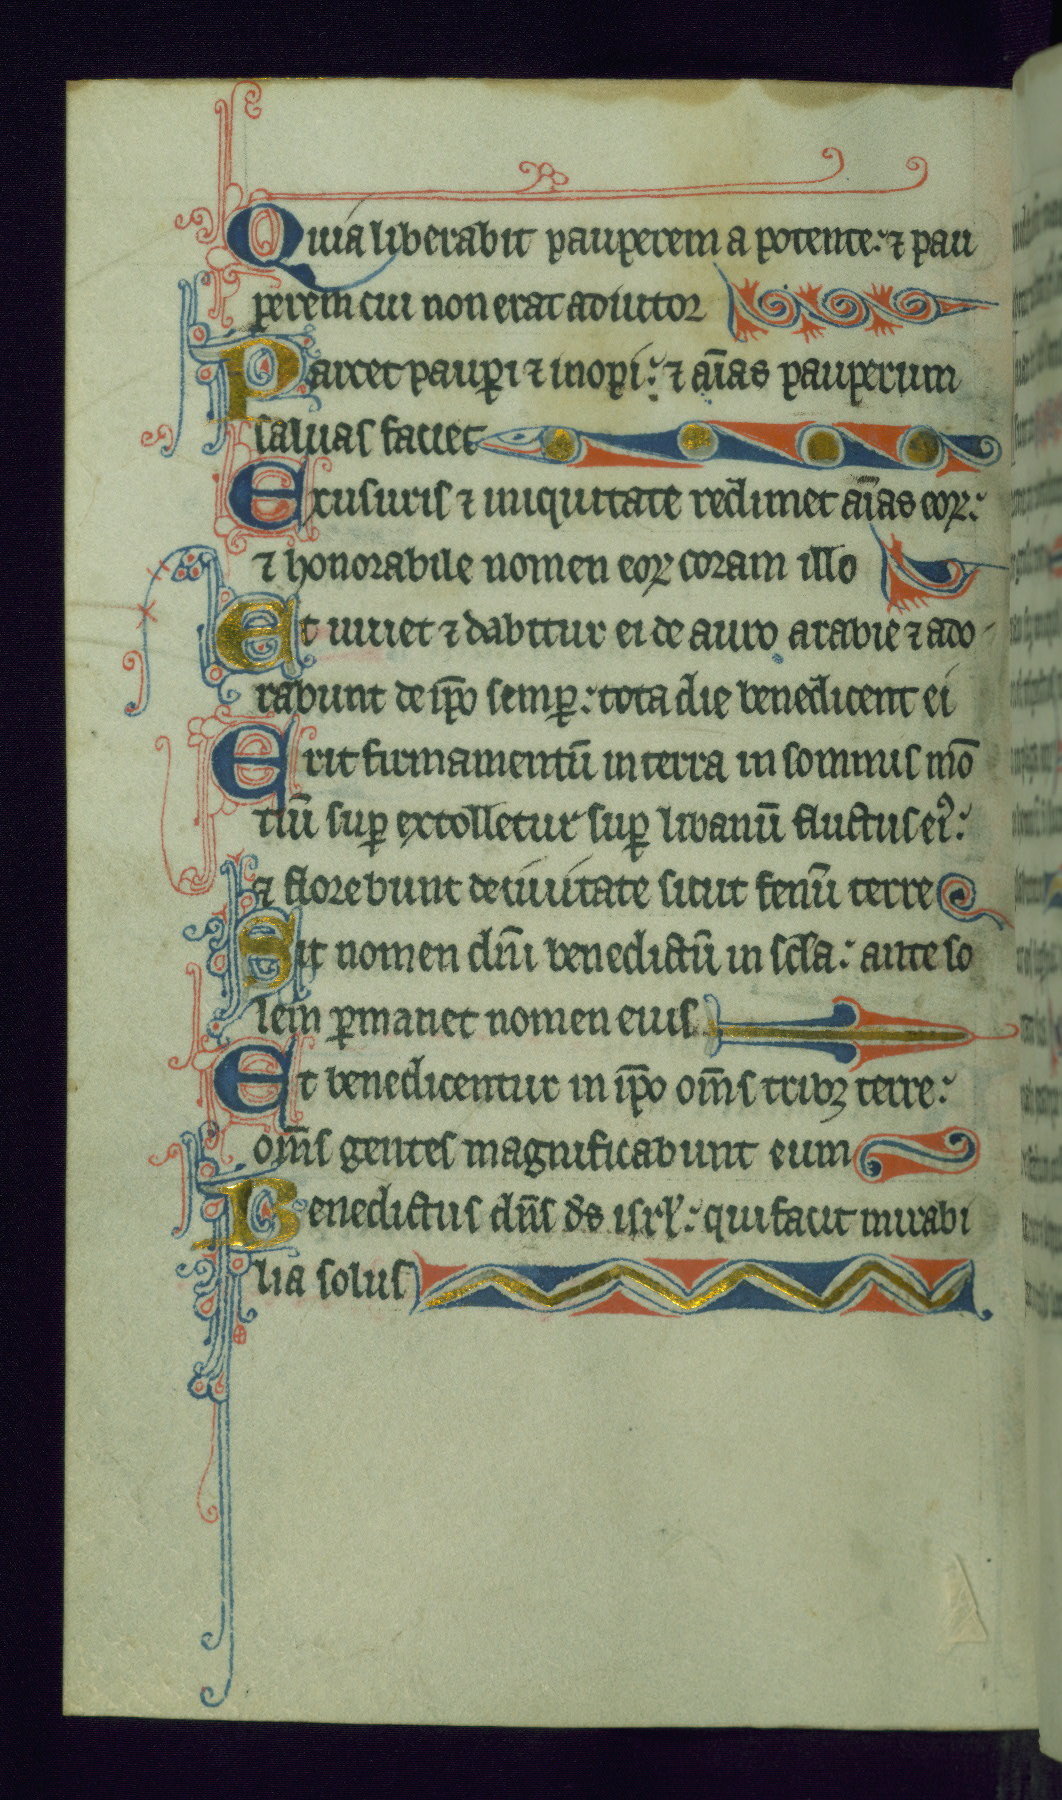 Quia liberabit pauperem a potente: ⁊ pau
perem cui non erat adiutor
Parcet paup̱i ⁊ inopi: ⁊ aīas pauperum
saluas faciet
Ex usuris ⁊ iniquitate redimet aīas eoꝝ:
⁊ honorabile nomen eoꝝ coram illo
Et uiuet ⁊ dabitur ei de auro arabie ⁊ ado
rabunt de ip̄o semꝑ: tota die benedicent ei
Erit firmamentū in terra in sommis mō
tiū suꝑ extolletur suꝑ libanū fluctus ei᾽:
⁊ florebunt de ciuitate sicut fenū terre
Sit nomen dn̄i benedictū in sc̄la: ante so
lem ꝑmanet nomen eius
Et benedicentur in ip̄o om̄s tribꝫ terre:
om̄s gentes magnificabunt eum
Benedictus dn̄s ds isrl̓: qui facit mirabi
lia solus